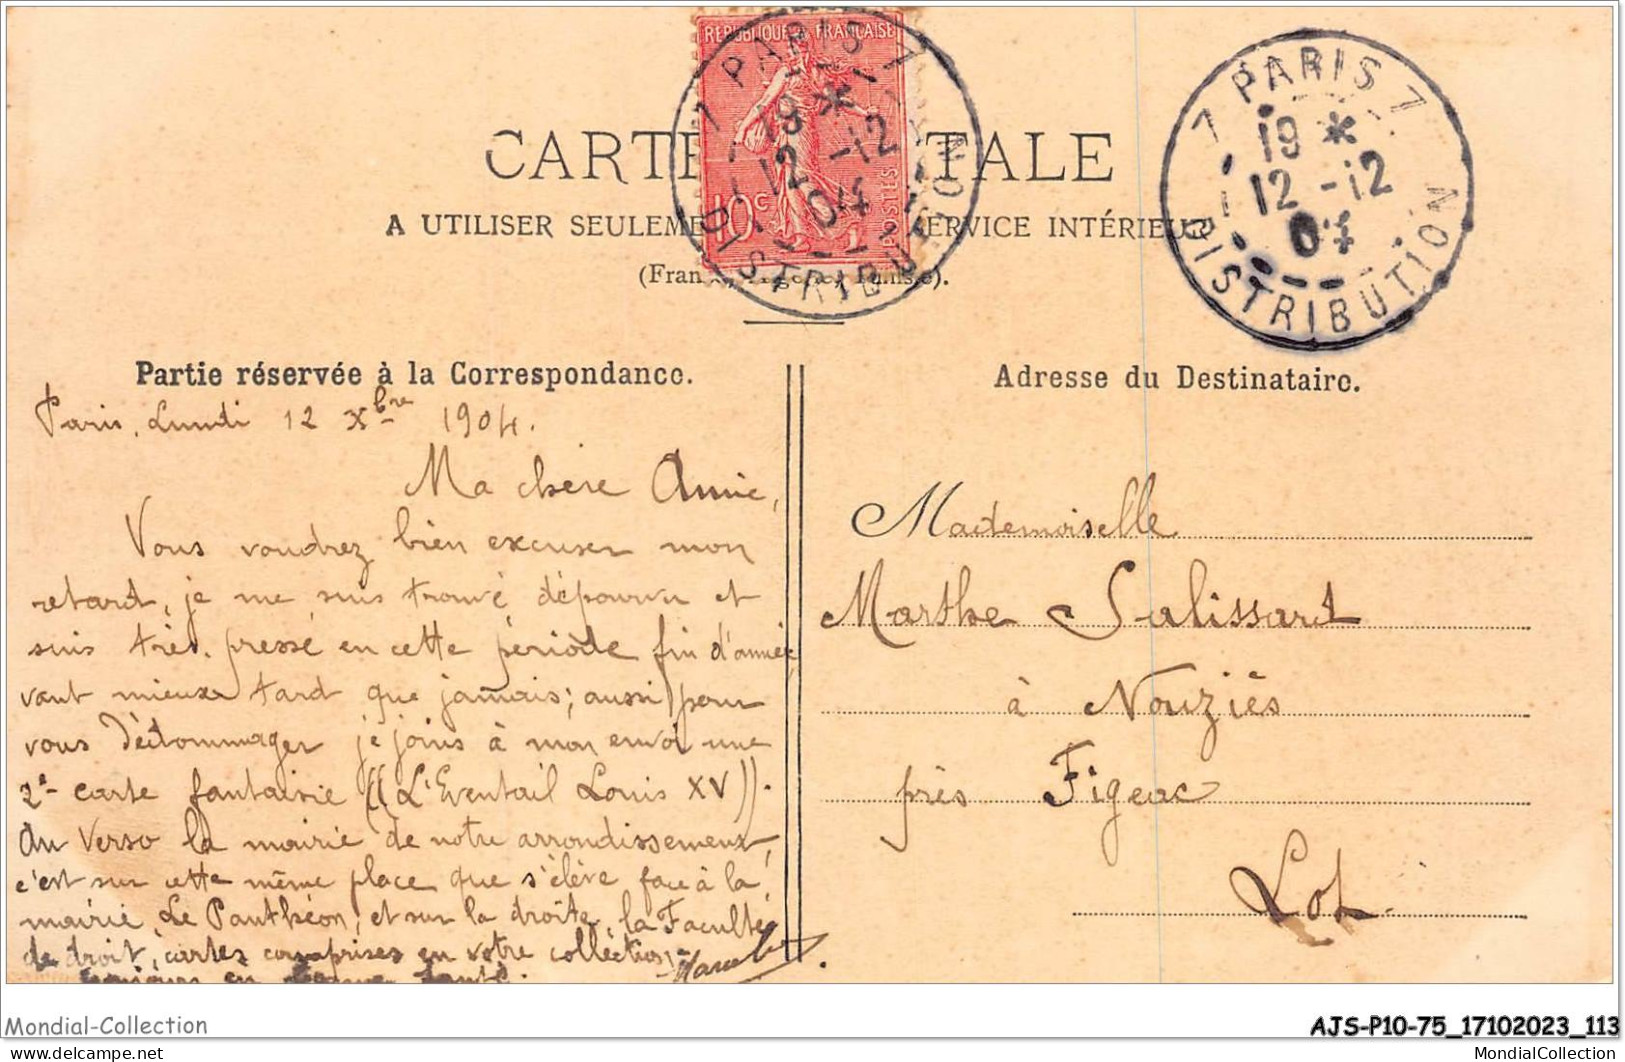 REPUBLIQUE FRANCAISE
10c
POSTES
7 PARIS 7
19 *
12 -12
04
DISTRIBUTION
7 PARIS 7
19 *
12 -12
04
DISTRIBUTION
CARTE TALE
A UTILISER SEULEME ERVICE INTÉRIEUR
(Fran
Partie réservée à la Correspondance.
Adresse du Destinataire.
Paris, Lundi 12 Xbre 1904.
Ma chère Amie,
Vous voudrez bien excuser mon
retard, je me suis trouvé dépourvu et
suis très pressé en cette période fin d'année,
vaut mieux tard que jamais; aussi pour
vous dédommager je joins à mon envoi une
2e carte fantaisie ((L'Eventail Louis XV)).
Au verso la mairie de notre arrondissement,
c'est sur cette même place que s'élève face à la
mairie, Le Panthéon, et sur la droite, la Faculté
de droit, cartes comprises en votre collection.
Toujours en bonne santé.
Mademoiselle
Marthe Salissard
à Nouziès
près Figeac
Lot.
Mondial-Collection
AJS-P10-75_17102023_113
delcampe.net
MondialCollection